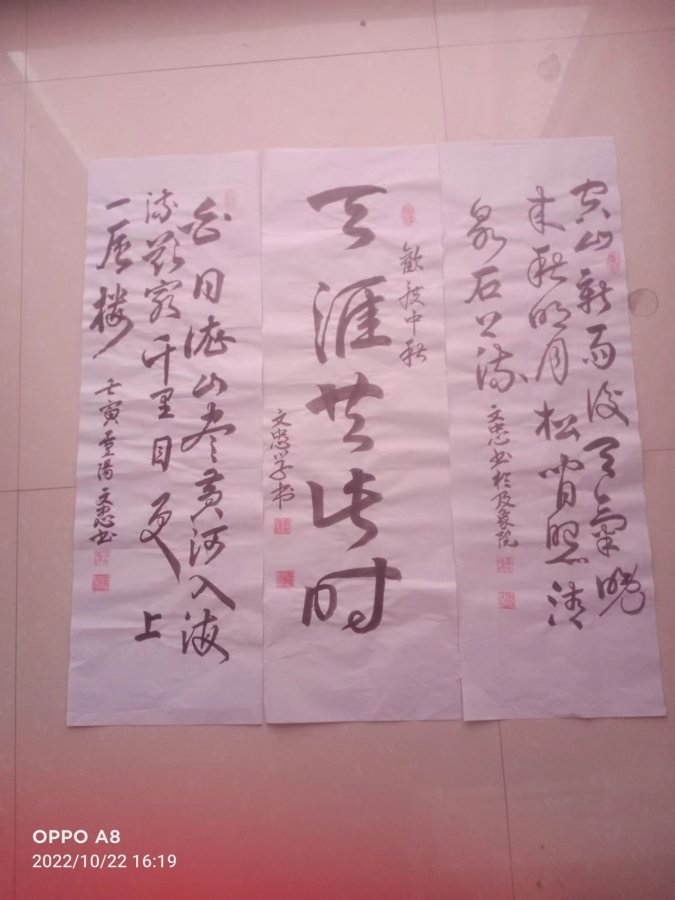 空山新雨後天氣晚
来秋明月松間照清
泉石上流
文忠书於
院
歡度中秋
天涯共此时
文忠学书
白日依山尽黄河入海
流欲穷千里目更上
一层楼
壬寅重陽文忠书
OPPO A8
2022/10/22 16:19